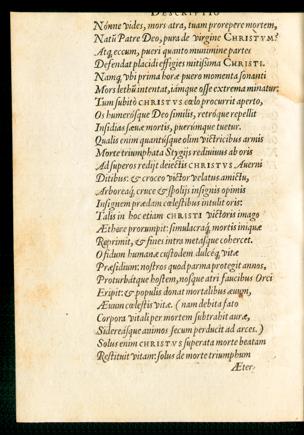 DESCRIPTIO
Nónne vides, mors atra, tuam prorepere mortem,
Natũ Patre Deo, pura de virgine CHRISTVM?
Atq; eccum, pueri quanto munimine partes
Defendat placidi effigies mitissima CHRISTI.
Namq; vbi prima horæ puero momenta sonanti
Mors lethũ intentat, iámque osse extrema minatur:
Tum subitò CHRISTVS cœlo procurrit aperto,
Os humerósque Deo similis, retróque repellit
Insidias sæuæ mortis, puerúmque tuetur.
Qualis enim quantúsque olim victricibus armis
Morte triumphata Stygijs rediuiuus ab oris
Ad superos redijt deiectis CHRISTVS Auerni
Ditibus: & croceo victor velatus amictu,
Arboreáq; cruce & spolijs insignis opimis
Insignem prædam cœlestibus intulit oris:
Talis in hoc etiam CHRISTI victoris imago
Æthere prorumpit: simulacráq; mortis iniquæ
Reprimit, & fines intra metásque cohercet.
O fidum humanæ custodem dulcéq; vitæ
Præsidium: nostros quod parma protegit annos,
Proturbátque hostem, nosque atri faucibus Orci
Eripit: & populis donat mortalibus æuum,
Æuum cœlestis vitæ. (nam debita fato
Corpora vitali per mortem subtrahit auræ,
Sidereásque animos secum perducit ad arces.)
Solus enim CHRISTVS superata morte beatam
Restituit vitam: solus de morte triumphum
Æter-